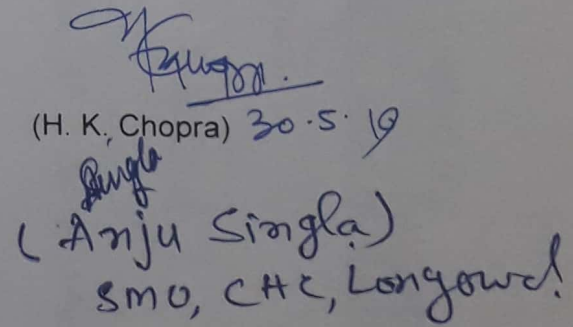 (H. K. Chopra) 30.5.19
Singla
(Anju Singla)
SMO, CHC, Longowal